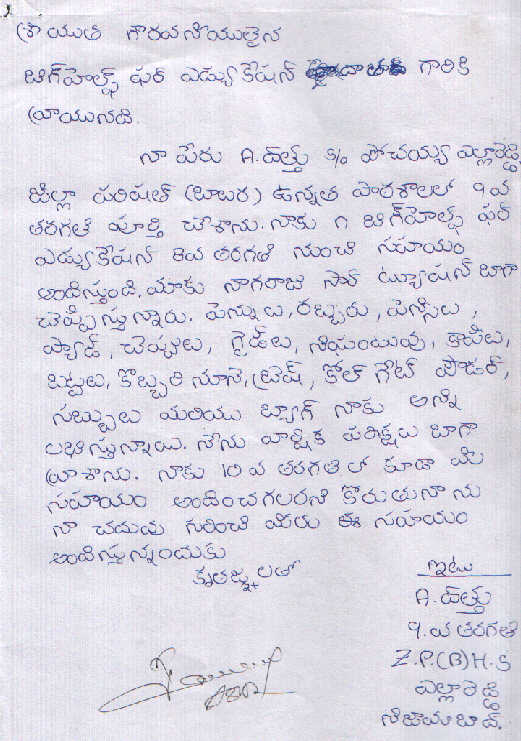 శ్రీయుత గౌరవనీయులైన
బిగ్‌హెల్ప్ ఫర్ ఎడ్యుకేషన్ గారికి
వ్రాయునది.
నా పేరు A. దత్తు S/o పోచయ్య ఎల్లారెడ్డి
జిల్లా పరిషత్ (బాలుర) ఉన్నత పాఠశాలలో 9వ
తరగతి పూర్తి చేశాను. నాకు బిగ్‌హెల్ప్ ఫర్
ఎడ్యుకేషన్ 8వ తరగతి నుంచి సహాయం
అందిస్తుంది. మాకు నాగరాజు సార్ ట్యూషన్ బాగా
చెప్పిస్తున్నారు. పెన్నులు, రబ్బరు, పెన్సిలు,
ప్యాడ్, చెప్పులు, గైడ్‌లు, నిఘంటువు, కాపీలు,
బట్టలు, కొబ్బరి నూనె, బ్రష్, కోల్ గేట్ పౌడర్,
సబ్బులు మరియు బ్యాగ్ నాకు అన్ని
లభిస్తున్నాయి. నేను వార్షిక పరీక్షలు బాగా
వ్రాశాను. నాకు 10వ తరగతి లో కూడా మీ
సహాయం అందించగలరని కోరుతునాను
నా చదువు గురించి మీరు ఈ సహాయం
అందిస్తున్నందుకు
కృతజ్ఞలతో
ఇటు
A. దత్తు
9.వ తరగతి
Z.P.(B)H.S
ఎల్లారెడ్డి
నిజామాబాద్.